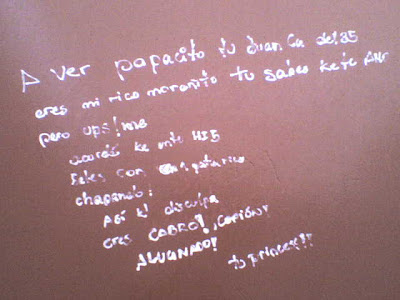 A ver papacito tu Juan Ca del 35
eres mi rico morenito tu sabes ke te AMO
pero ups! 
ke entro HI5
Sales con gatarico
chapando:
Así k! disculpa
eres CABRO!, ¡Cofión!
ALUCINADO!
tu princess!!